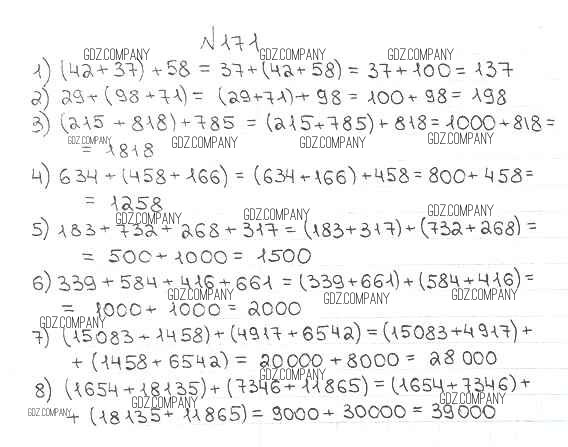 N171
GDZ.COMPANY GDZ.COMPANY GDZ.COMPANY
1) (42+37)+58 = 37+(42+58) = 37+100 = 137
2) 29+(98+71) = (29+71)+98 = 100+98 = 198
3) (215+818)+785 = (215+785)+818 = 1000+818 =
GDZ.COMPANY GDZ.COMPANY GDZ.COMPANY GDZ.COMPANY
= 1818
4) 634+(458+166) = (634+166)+458 = 800+458 =
= 1258
GDZ.COMPANY GDZ.COMPANY
5) 183+732+268+317 = (183+317)+(732+268) =
= 500+1000 = 1500
6) 339+584+416+661 = (339+661)+(584+416) =
GDZ.COMPANY GDZ.COMPANY GDZ.COMPANY
= 1000+1000 = 2000
GDZ.COMPANY
7) (15083+1458)+(4917+6542) = (15083+4917)+
+(1458+6542) = 20000+8000 = 28 000
GDZ.COMPANY
8) (1654+18135)+(7346+11865) = (1654+7346)+
GDZ.COMPANY GDZ.COMPANY GDZ.COMPANY
+(18135+11865) = 9000+30000 = 39000